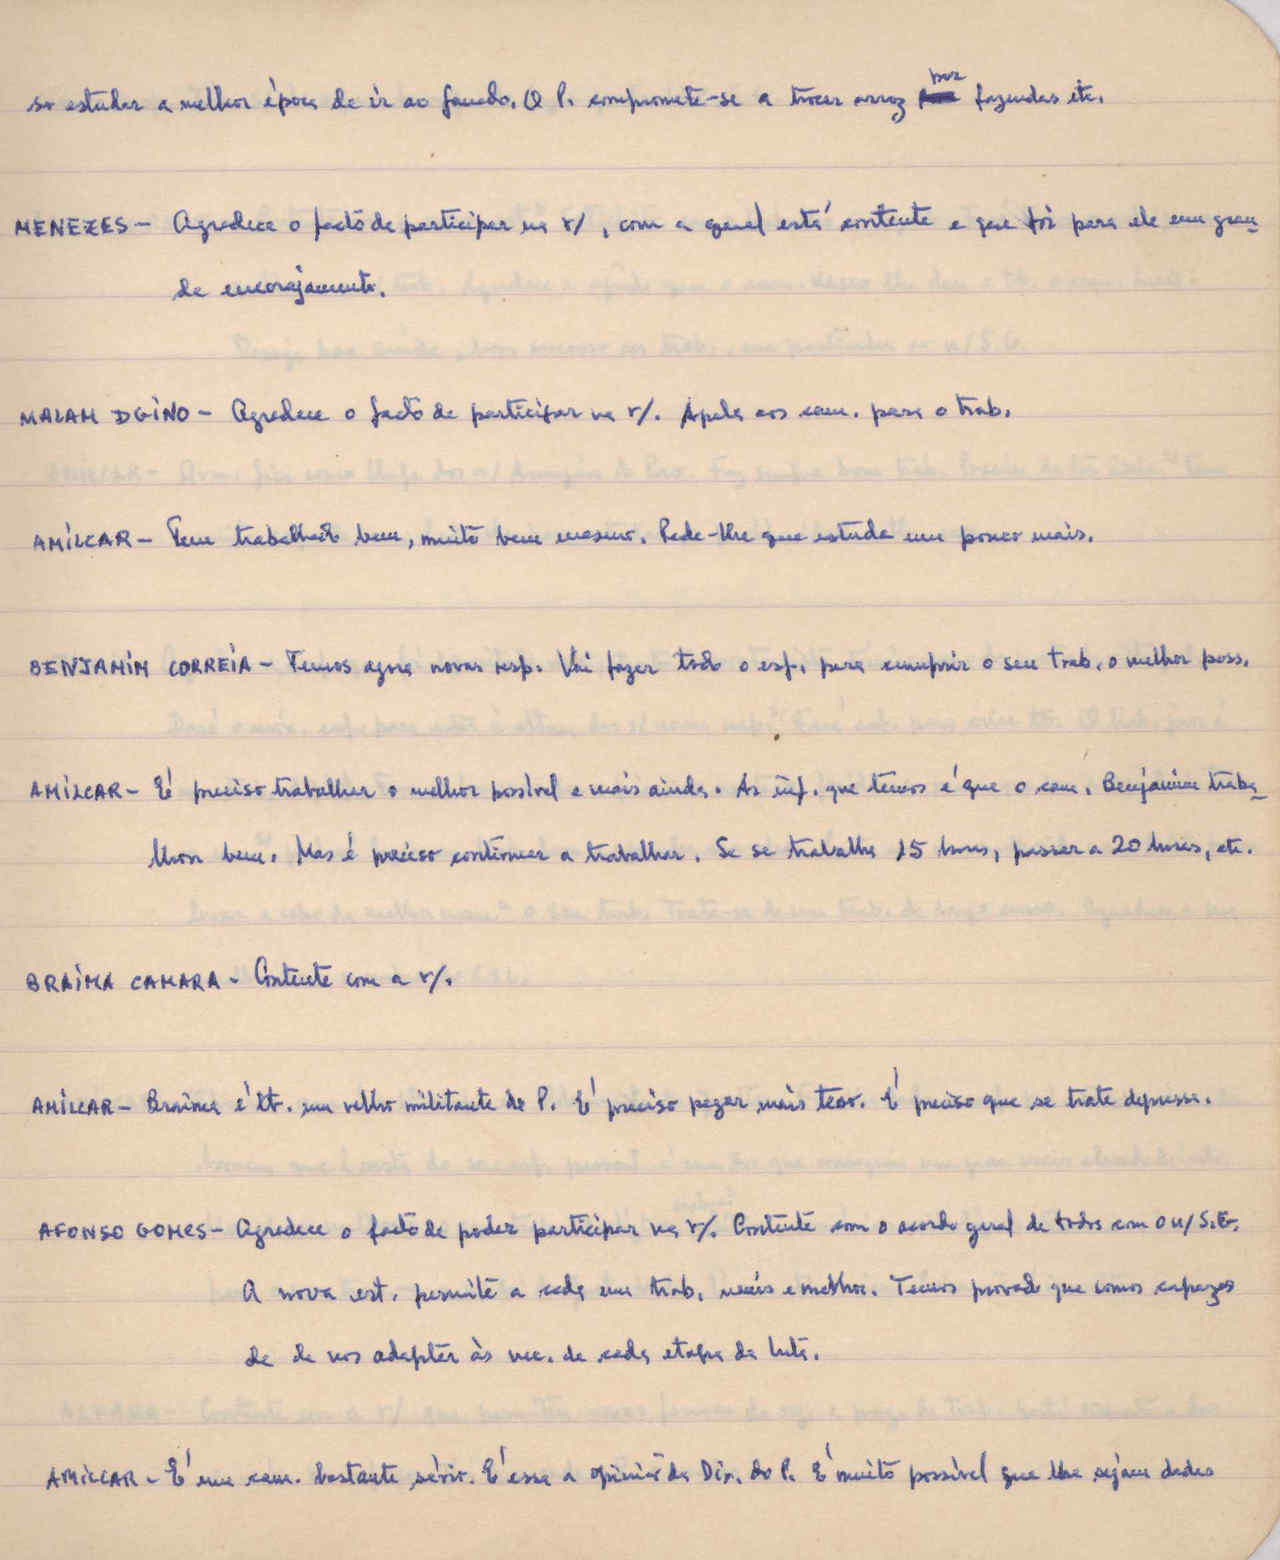 se estudar a melhor época de ir ao Gamado. O P. compromete-se a trocar arroz por fazendas etc.
MENEZES - Agradece o facto de participar na r/, com a qual está contente e que foi para ele um gran-
de encorajamento.
MALAM DGINO - Agradece o facto de participar na r/. Apela aos cam. para o trab.
AMILCAR - Tem trabalhado bem, muito bem mesmo. Pede-lhe que estude um pouco mais.
BENJAMIM CORREIA - Temos agora novas resp. Vai fazer todo o esf. para cumprir o seu trab. o melhor poss.
AMILCAR - É preciso trabalhar o melhor possível e mais ainda. As inf. que temos é que o cam. Benjamim traba-
lhou bem. Mas é preciso continuar a trabalhar. Se se trabalha 15 horas, passar a 20 horas, etc.
BRAIMA CAMARA - Contente com a r/.
AMILCAR - Braima é tb. um velho militante do P. É preciso pegar mais teso. É preciso que se trate depressa.
AFONSO GOMES - Agradece o facto de poder participar na r/. Contente com o acordo geral de todos com o n/ S.G.
A nova est. permite a cada um trab. mais e melhor. Temos provado que somos capazes
de de nos adaptar às nec. de cada etapa da luta.
AMILCAR - É um cam. bastante sério. É essa a opinião da Dir. do P. É muito possível que lhe sejam dadas